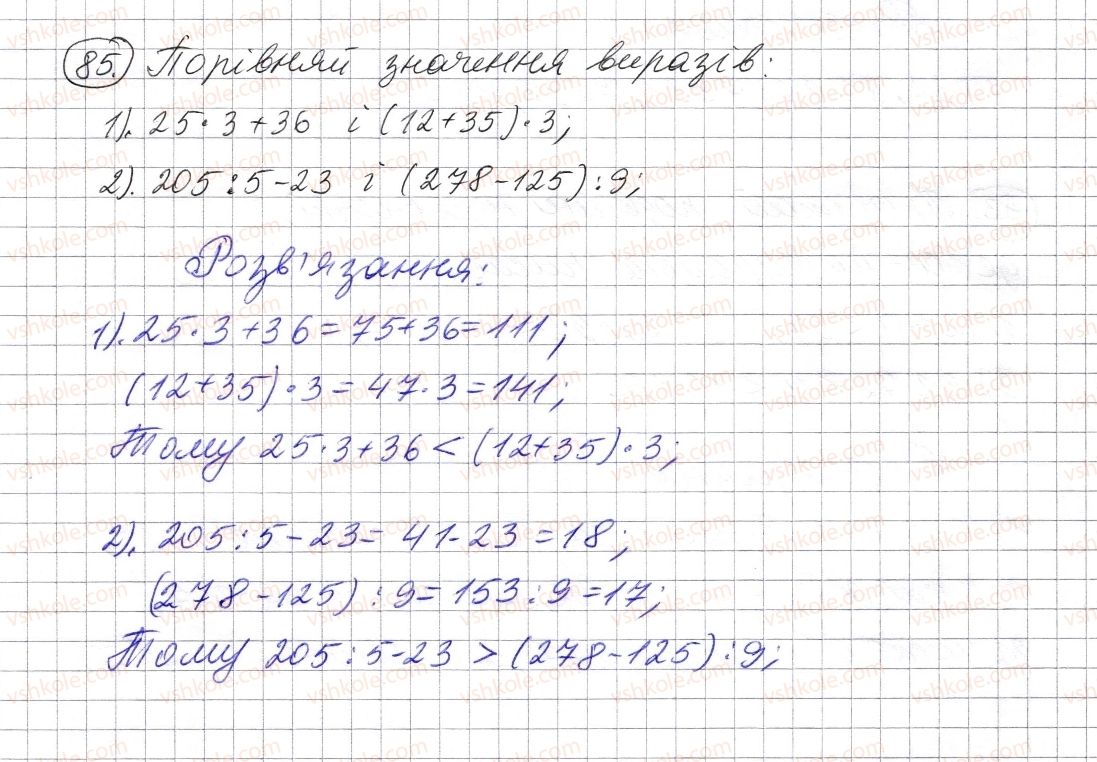 85. Порівняй значення виразів:
1). 25·3+36 і (12+35)·3;
2). 205:5-23 і (278-125):9;
Розв'язання:
1). 25·3+36=75+36=111;
(12+35)·3=47·3=141;
Тому 25·3+36<(12+35)·3;
2). 205:5-23=41-23=18;
(278-125):9=153:9=17;
Тому 205:5-23>(278-125):9;